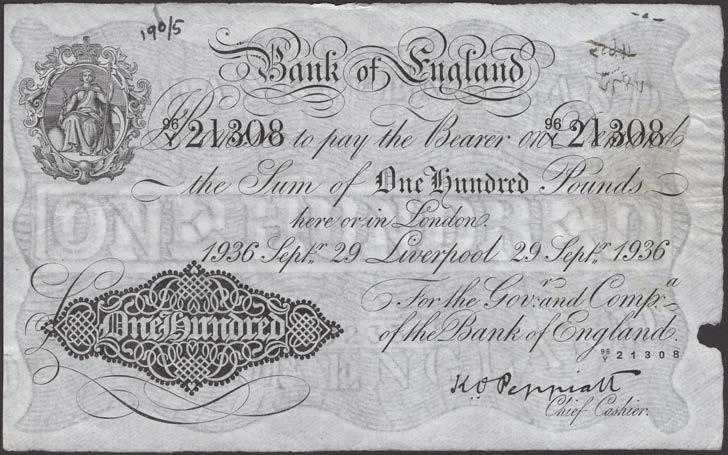 190/5
Bank of England
96/Y 21308 to pay the Bearer on 96/Y 21308
the Sum of One Hundred Pounds
here or in London.
1936 Septr. 29 Liverpool 29 Septr. 1936
For the Govr. and Compa.
of the Bank of England.
One Hundred
96/Y 21308
K O Peppiatt
Chief Cashier.